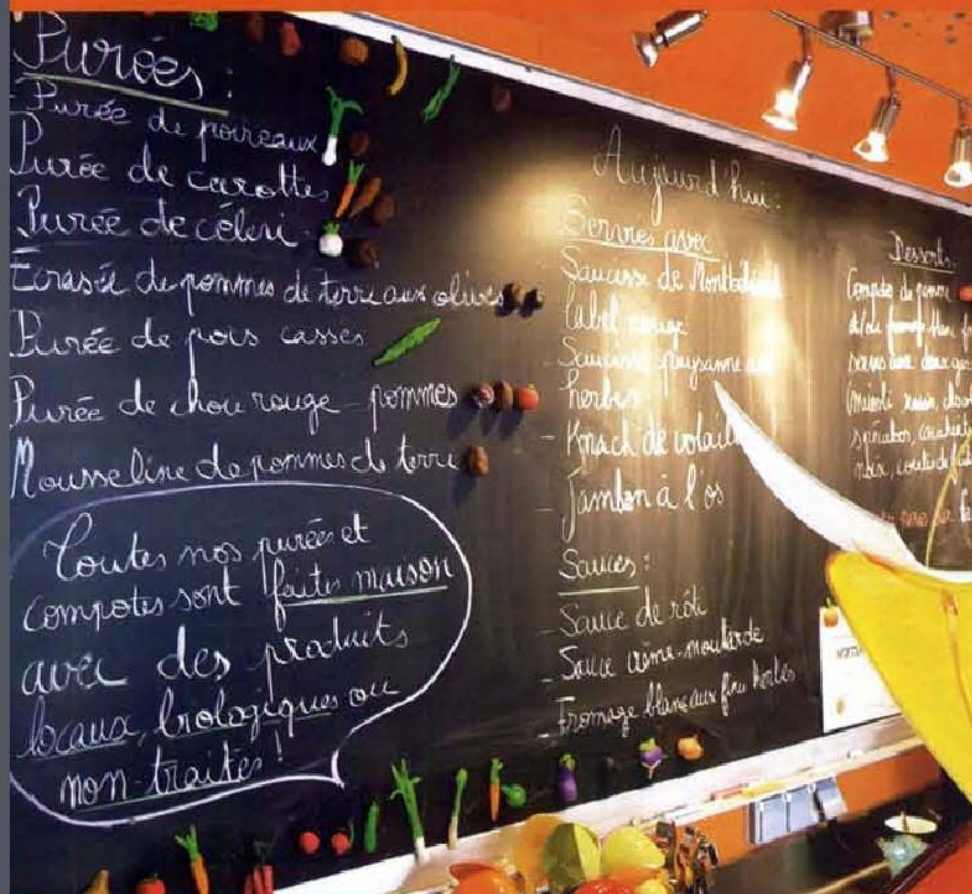 Purées :
- Purée de poireaux
Purée de carottes
Purée de céleri
Ecrasée de pommes de terre aux olives
Purée de pois cassés
Purée de chou rouge - pommes
Mousseline de pommes de terre
Toutes nos purées et
compotes sont faites maison
avec des produits
locaux, biologiques ou
non-traités !
Aujourd'hui :
Servies avec
Saucisse de
Label rouge
- Saucisse paysanne aux
herbes
- Knack de volaille
- Jambon à l'os
Sauces :
- Sauce de rôti
- Sauce crème-moutarde
- Fromage blanc aux fines herbes
Desserts
Compotes de pomme